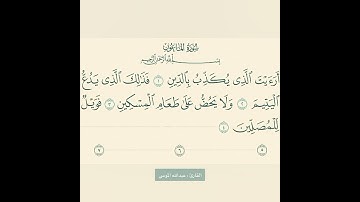 سورة الماعون
بسم الله الرحمن الرحيم
أَرَءَيْتَ الَّذِي يُكَذِّبُ بِالدِّينِ ١ فَذَٰلِكَ الَّذِي يَدُعُّ
الْيَتِيمَ ٢ وَلَا يَحُضُّ عَلَىٰ طَعَامِ الْمِسْكِينِ ٣ فَوَيْلٌ
لِّلْمُصَلِّينَ ٤
٥ ٦ ٧
القارئ : عبدالله الموسى